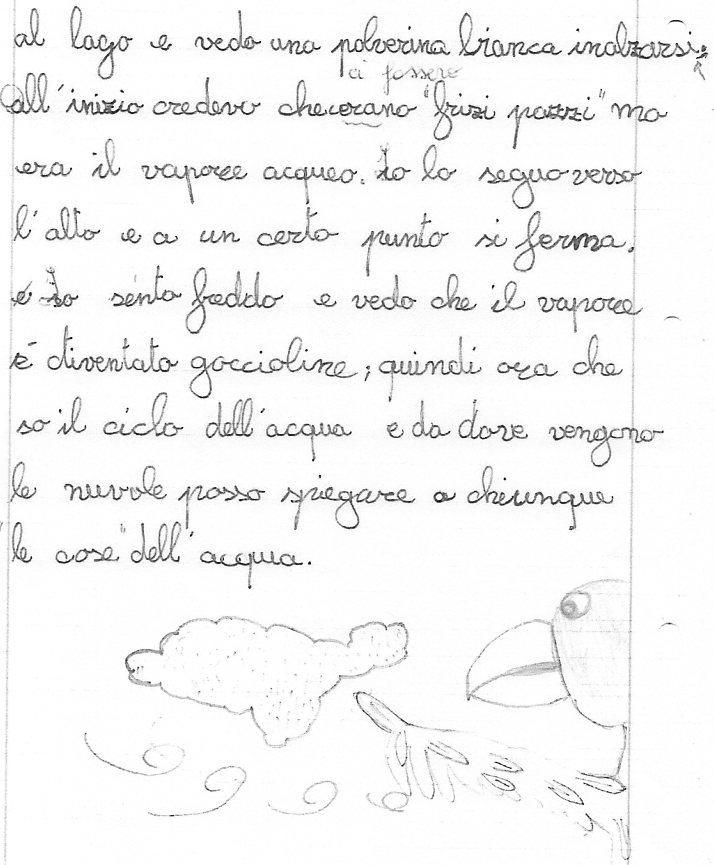 al lago e vedo una polverina bianca inalzarsi:
ci fossero
all'inizio credevo che cerano "frizi pazzi" ma
era il vapore acqueo. Io lo seguo verso
l'alto e a un certo punto si ferma.
Io sento freddo e vedo che il vapore
è diventato goccioline; quindi ora che
so il ciclo dell'acqua e da dove vengono
le nuvole posso spiegare a chiunque
"le cose" dell'acqua.